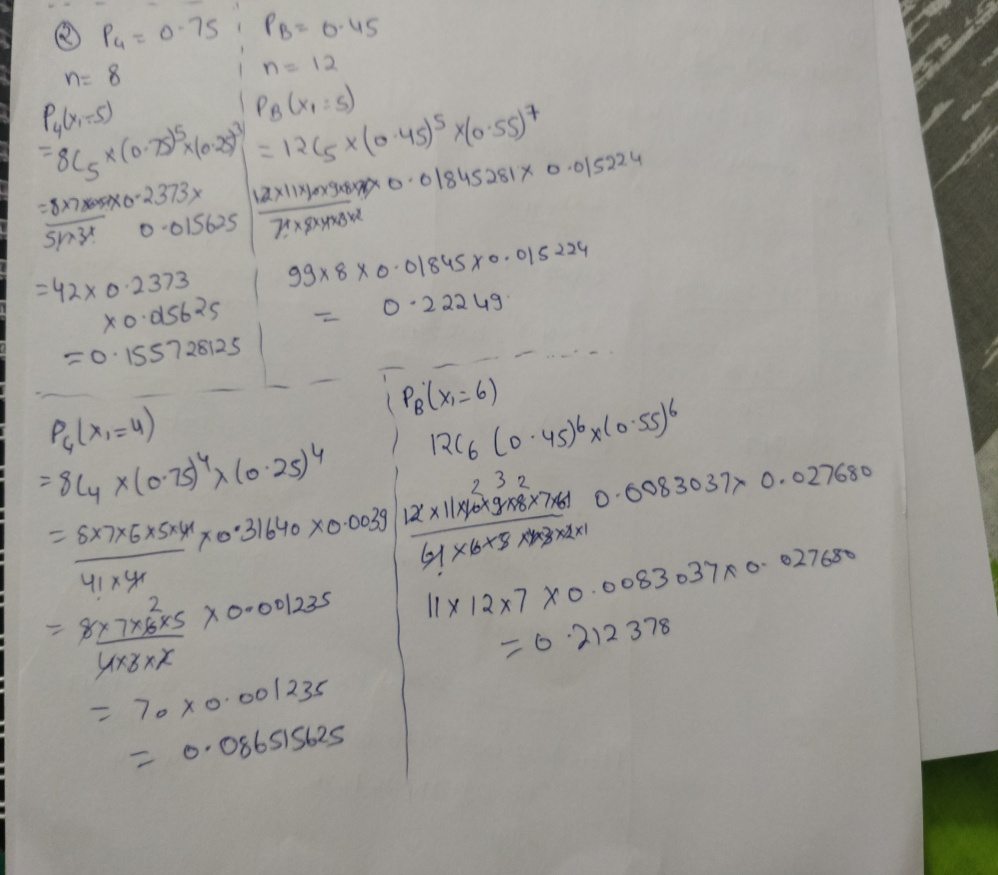 ② P₄ = 0.75
n = 8
P₄(x₁=5)
= 8C₅ × (0.75)⁵ × (0.25)³
= 8×7××0.2373×
5!×3! 0.015625
= 42 × 0.2373
× 0.015625
= 0.155728125
P_B = 0.45
n = 12
P_B(x₁=5)
= 12C₅ × (0.45)⁵ × (0.55)⁷
12×11×10×9×8×7! × 0.01845281 × 0.015224
7!×5×4×3×2
99 × 8 × 0.01845 × 0.015224
= 0.22249
P₄(x₁=4)
= 8C₄ × (0.75)⁴ × (0.25)⁴
= 8×7×6×5×4! × 0.31640 × 0.0039
4! × 4!
2
= 8×7×6×5 × 0.001235
4×3×2
= 70 × 0.001235
= 0.086515625
P_B(x₁=6)
12C₆ (0.45)⁶ × (0.55)⁶
2 3 2
12×11×10×9×8×7×6! 0.0083037 × 0.027680
6!×6×5×4×3×2×1
11 × 12 × 7 × 0.0083037 × 0.027680
= 0.212378